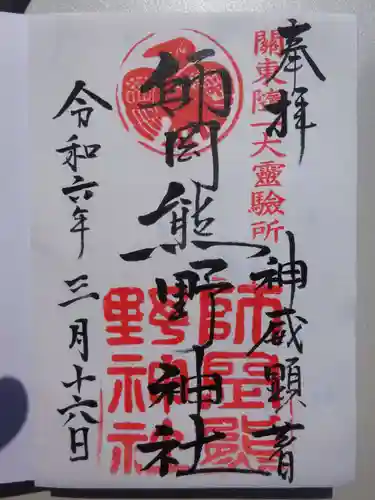 奉拝
關東随一大靈驗所
神威顕著
師岡熊野神社
師岡熊野神社
令和六年
三月十六日